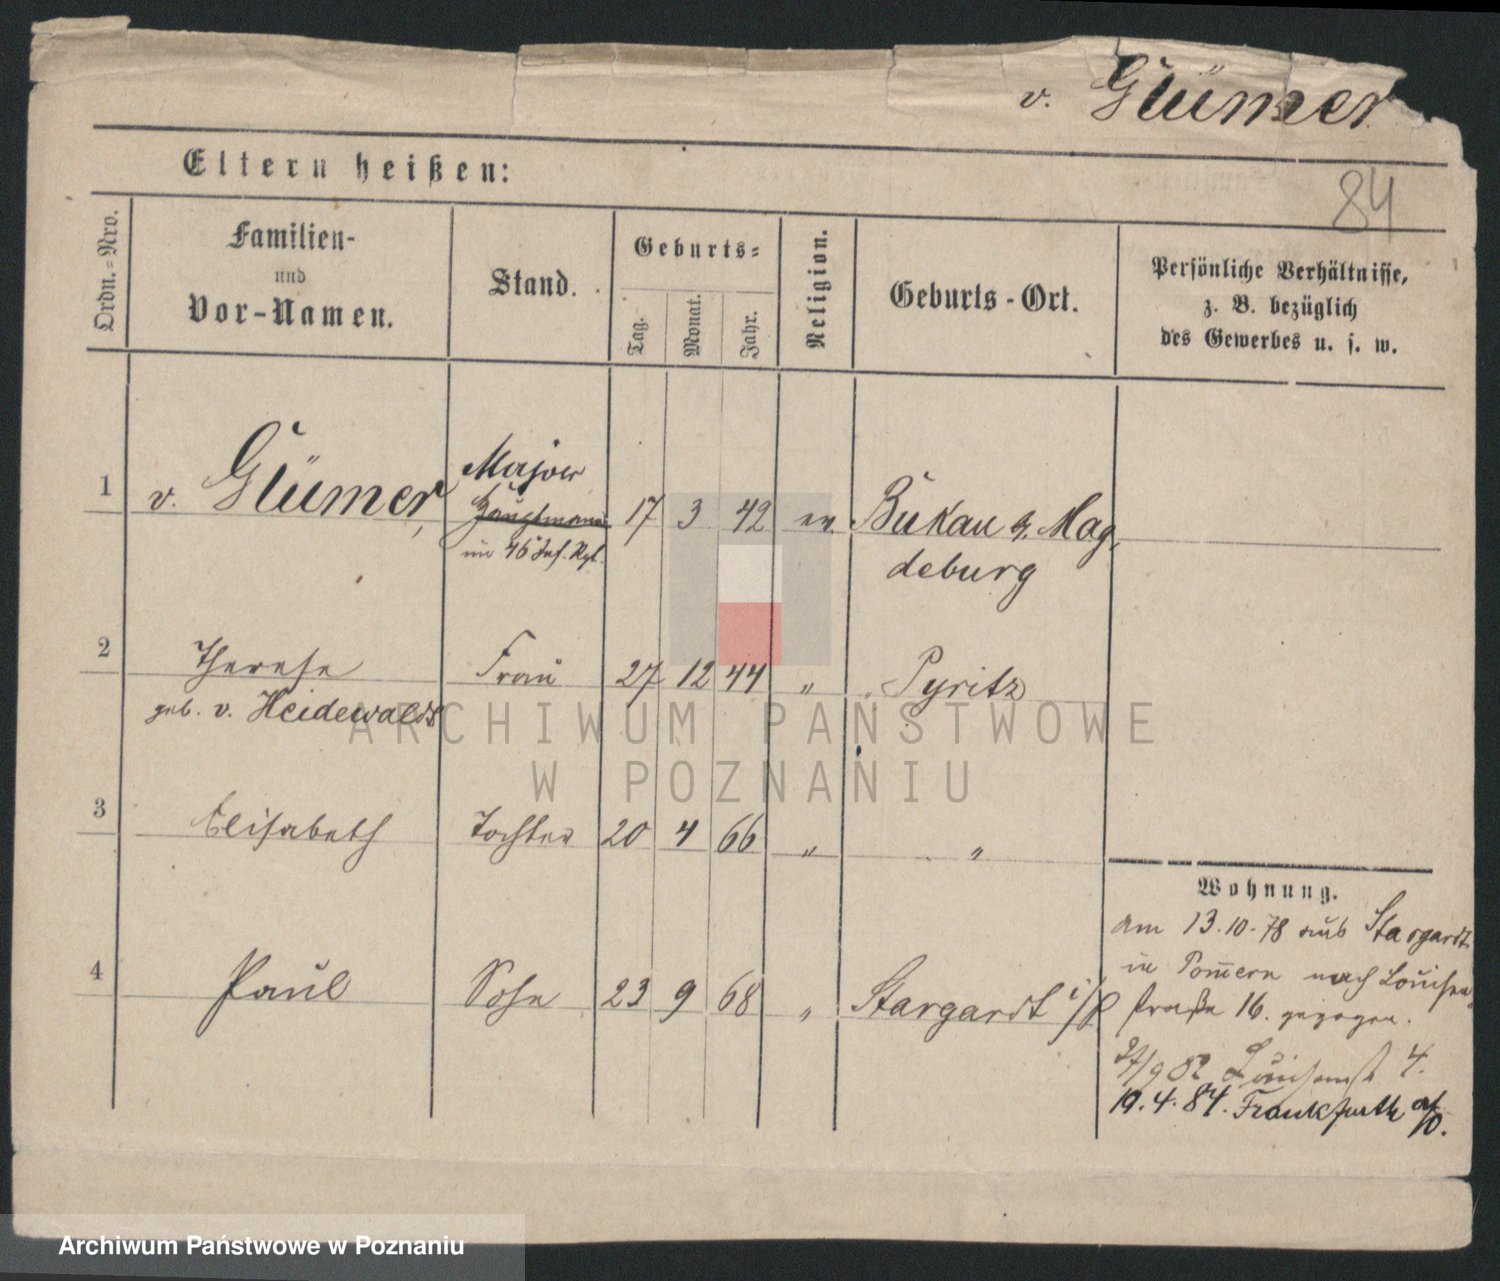 v. Glümer
84
Eltern heißen:
Ordn.=Nro.
Familien-
und
Vor-Namen.
Stand.
Geburts=
Tag.
Monat.
Jahr.
Religion.
Geburts-Ort.
Persönliche Verhältnisse,
z. B. bezüglich
des Gewerbes u. s. w.
1 v. Glümer, Major
Hauptmann 17 3 42 ev. Bukau b. Mag
im 46 Inf. Rgt. deburg
2 Therese Frau 27 12 44 " Pyritz
geb. v. Heidewaldt
3 Elisabeth Tochter 20 4 66 " "
4 Paul Sohn 23 9 68 " Stargardt i/P
Wohnung.
am 13.10.78 aus Stargardt
in Pommern nach Louisen
straße 16. gezogen.
27/9 82 Louisenst 4.
19.4.84. Frankfurth a/O.
ARCHIWUM PAŃSTWOWE
W POZNANIU
Archiwum Państwowe w Poznaniu